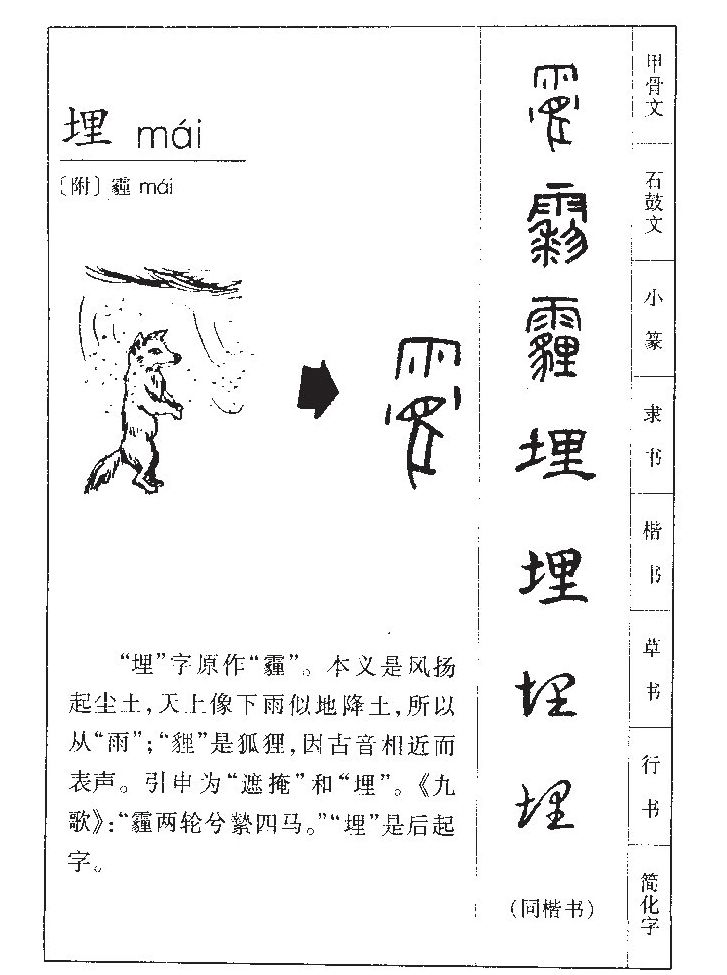 埋 mái
〔附〕霾 mái
“埋”字原作“霾”。本义是风扬
起尘土,天上像下雨似地降土,所以
从“雨”;“貍”是狐狸,因古音相近而
表声。引申为“遮掩”和“埋”。《九
歌》:“霾两轮兮絷四马。”“埋”是后起
字。
霾
霾
霾
埋
埋
埋
埋
(同楷书)
甲骨文
石鼓文
小篆
隶书
楷书
草书
行书
简化字